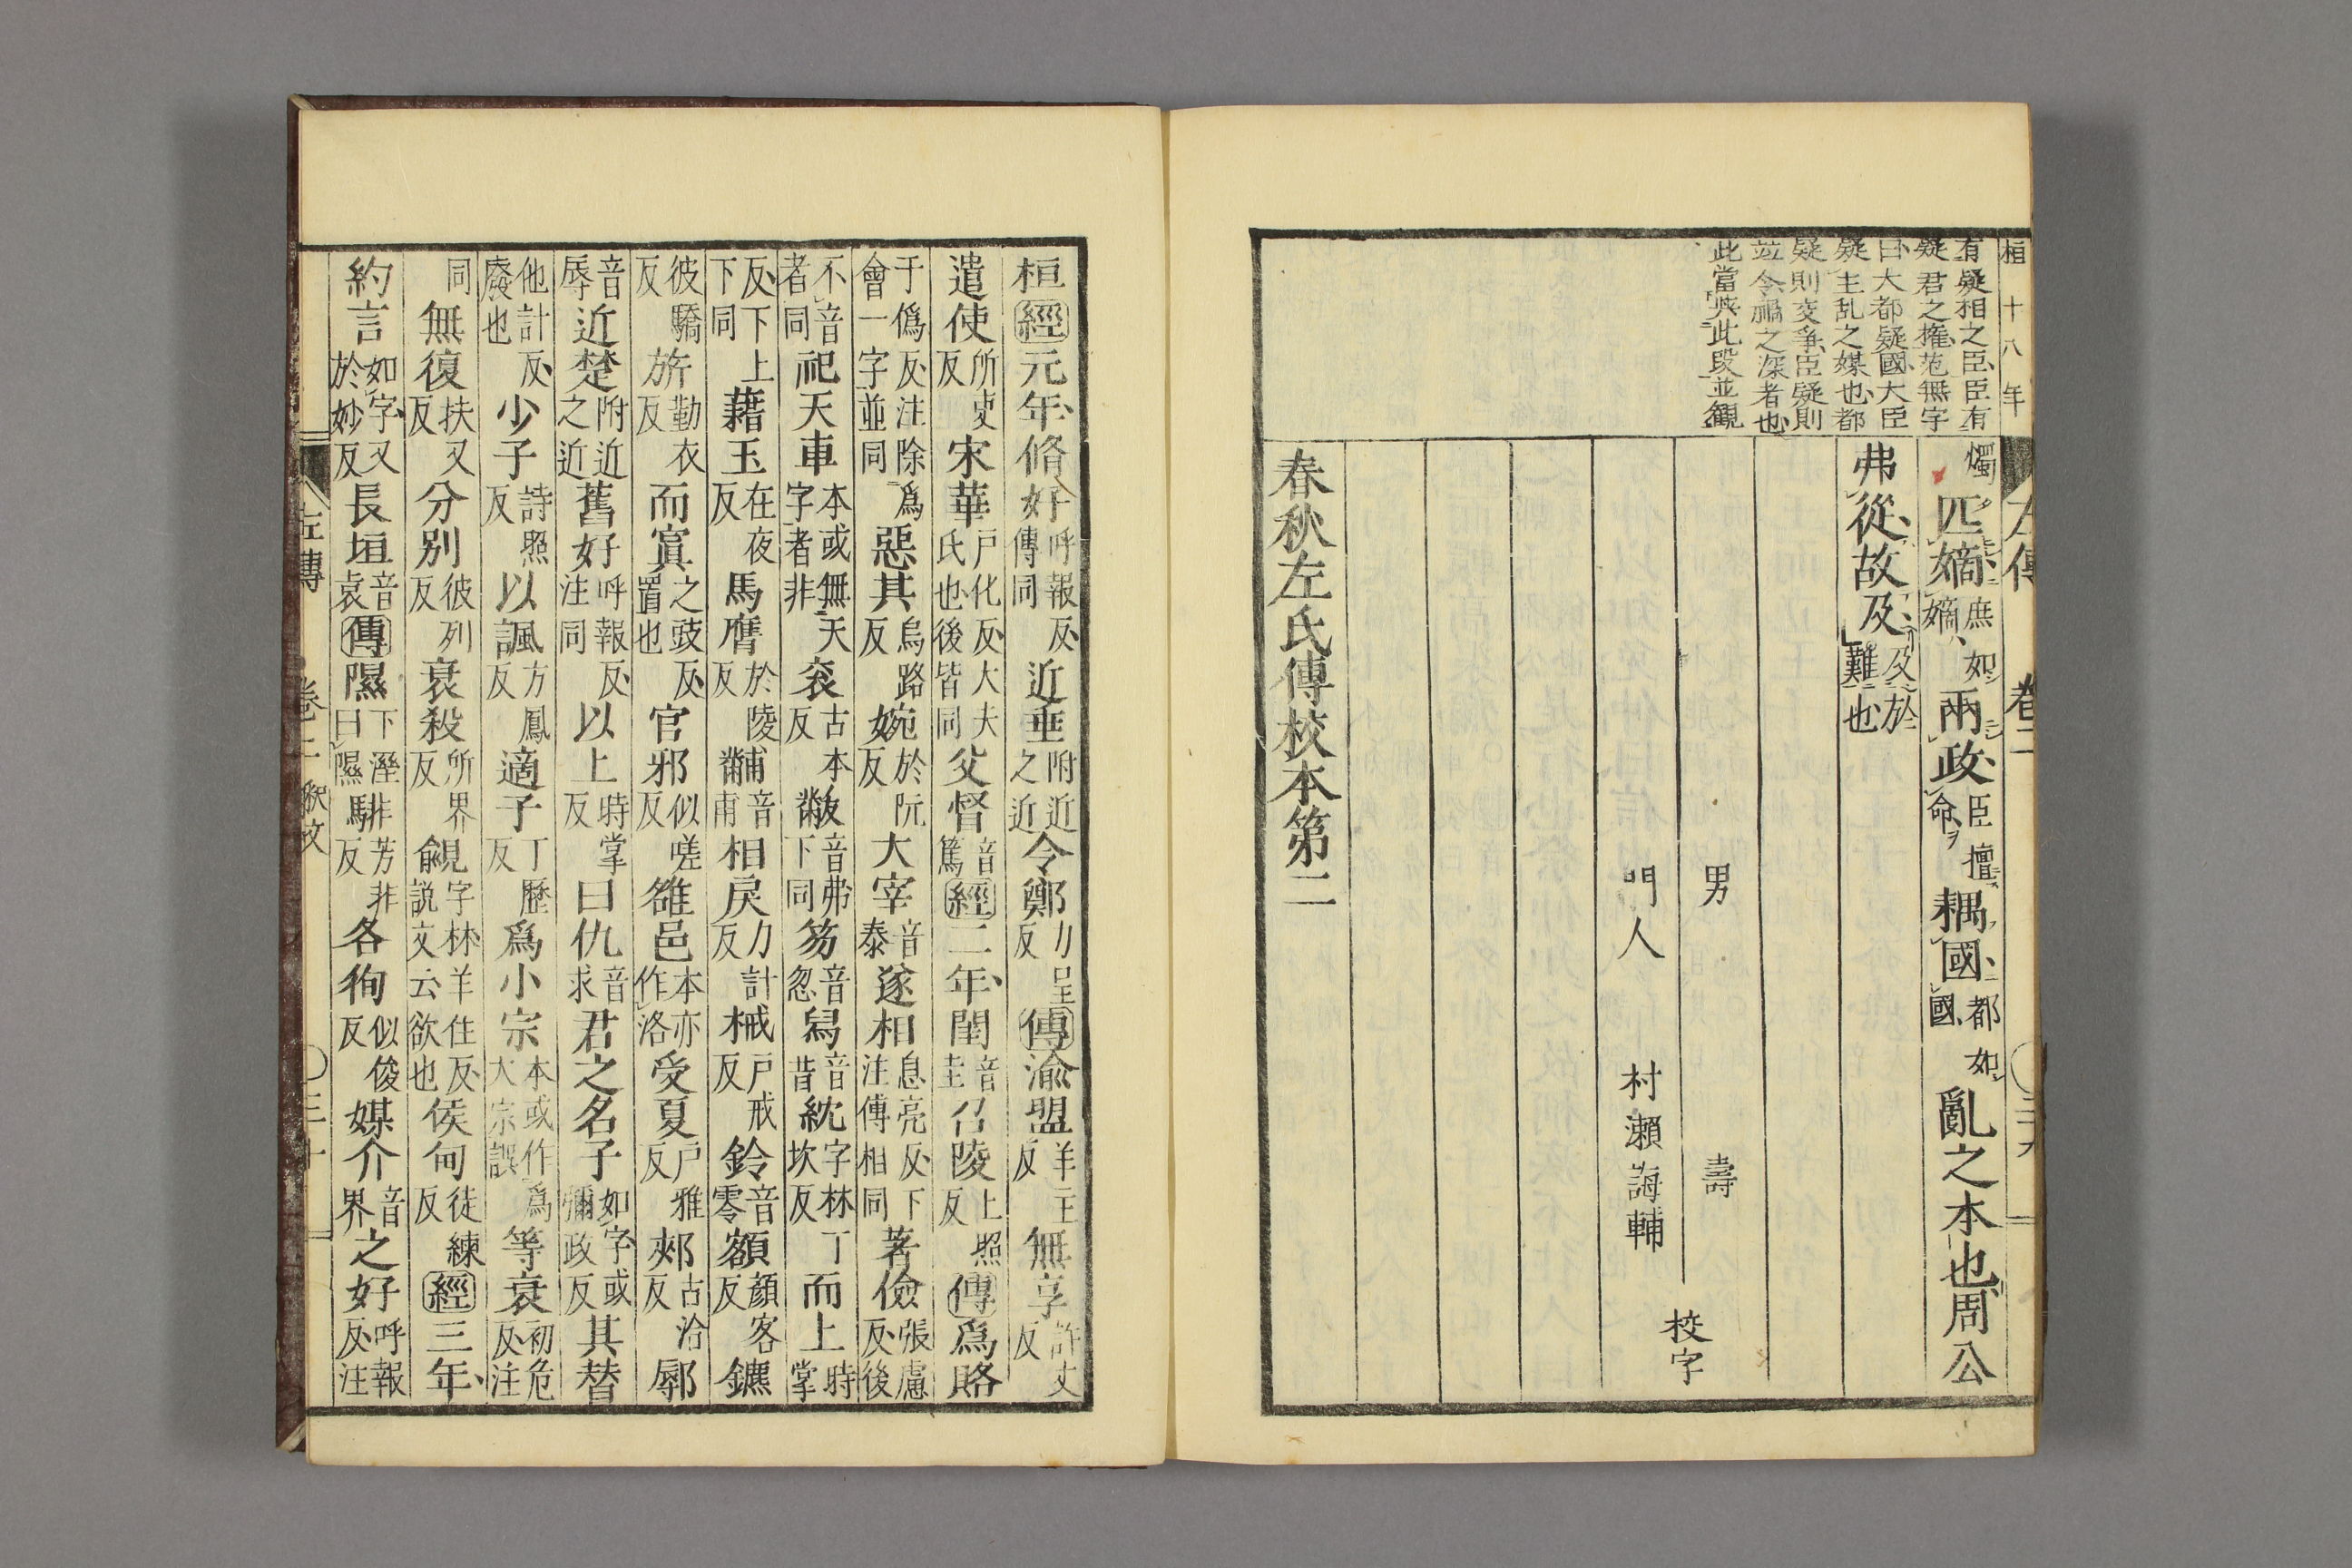 桓十八年
有疑相之臣臣有
疑君之權范無宇
曰大都疑國大臣
疑主乱之媒也都
疑則交爭臣疑則
並令禍之深者也
此當與此段並觀
左傳 卷二
燭 匹嫡 庶如嫡 兩政 臣擅命ヲ 耦國 都如國 亂之本也周公
弗從故及 及於難也
男 壽
門人 村瀨誨輔
校字
春秋左氏傳校本第二
桓經元年脩好 呼報反傳同 近垂 附近之近 令鄭 力呈反 傳渝盟 羊主反 無享 許丈反
遣使 所吏反 宋華 戶化反大夫氏也後皆同 父督 音篤 經二年閨 音圭 召陵 上照反 傳爲賂
于僞反注除爲會一字並同 惡其 烏路反 婉 於阮反 大宰 音泰 遂相 息亮反下注傳相同 著儉 張慮反後
不音者同 祀天車 本或無天字者非 袞 古本反 黻 音弗下同 笏 音忽 舄 音昔 紞 字林丁坎反 而上 時掌
反下上下同 藉玉 在夜反 馬膺 於陵反 黼 音甫 相戾 力計反 棫 戶戒反 鈴 音零 額 顏客反 鑣
彼驕反 旂 勤衣反 而寘 之豉反置也 官邪 似嗟反 雒邑 本亦作洛 受夏 戶雅反 郟 古洽反 鄏
音辱 近楚 附近之近 舊好 呼報反注同 以上 時掌反 曰仇 音求 君之名子 如字或彌政反 其替
他計反廢也 少子 詩照反 以諷 方鳳反 適子 丁歷反 爲小宗 本或作爲大宗誤 等衰 初危反注
同 無復 扶又反 分別 彼列反 衰殺 所界反 覦 字林羊住反説文云欲也 侯甸 徒練反 經三年
約言 如字又於妙反 長垣 音袁 傳隰 下溼曰隰 騑 芳非反 各徇 似俊反 媒介 音界 之好 呼報反注
左傳 卷二 釈文 三十